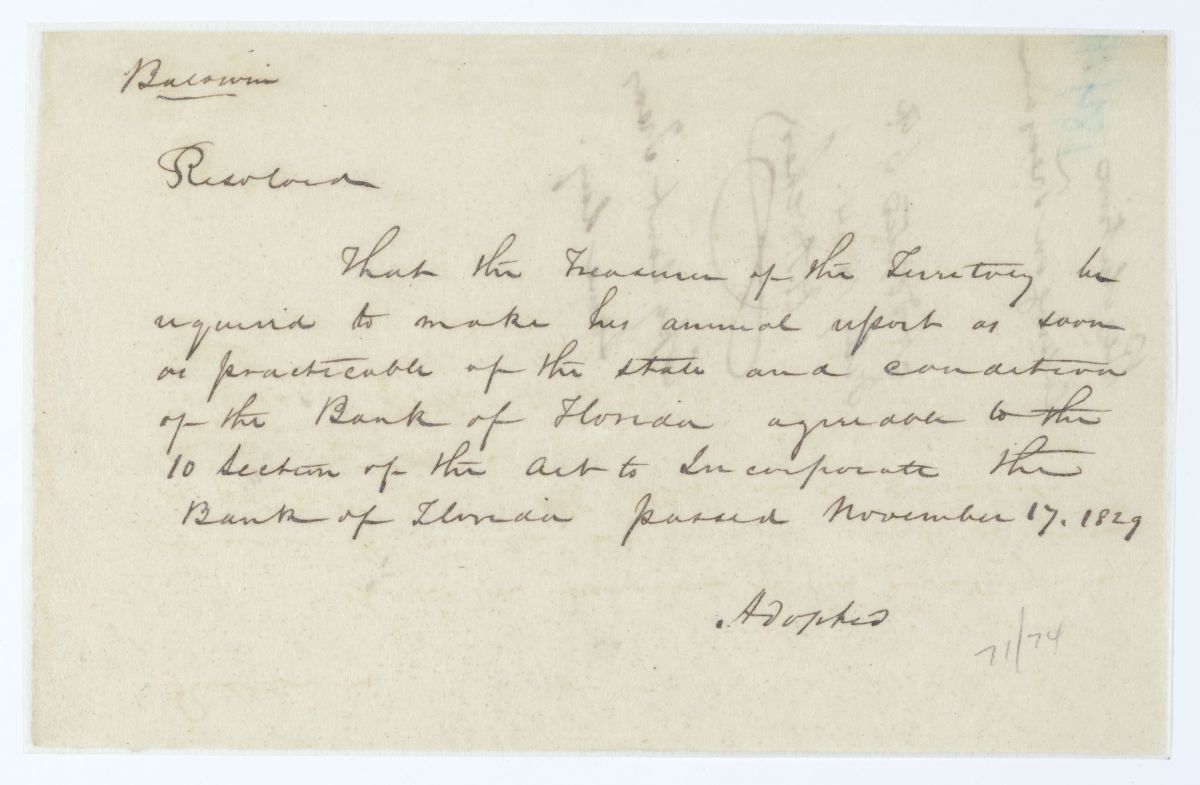 Baldwin
Resolved
That the Treasurer of the Territory be
required to make his annual report as soon
as practicable of the state and condition
of the Bank of Florida agreeable to the
10 Section of the Act to Incorporate the
Bank of Florida passed November 17. 1829
Adopted
71/74